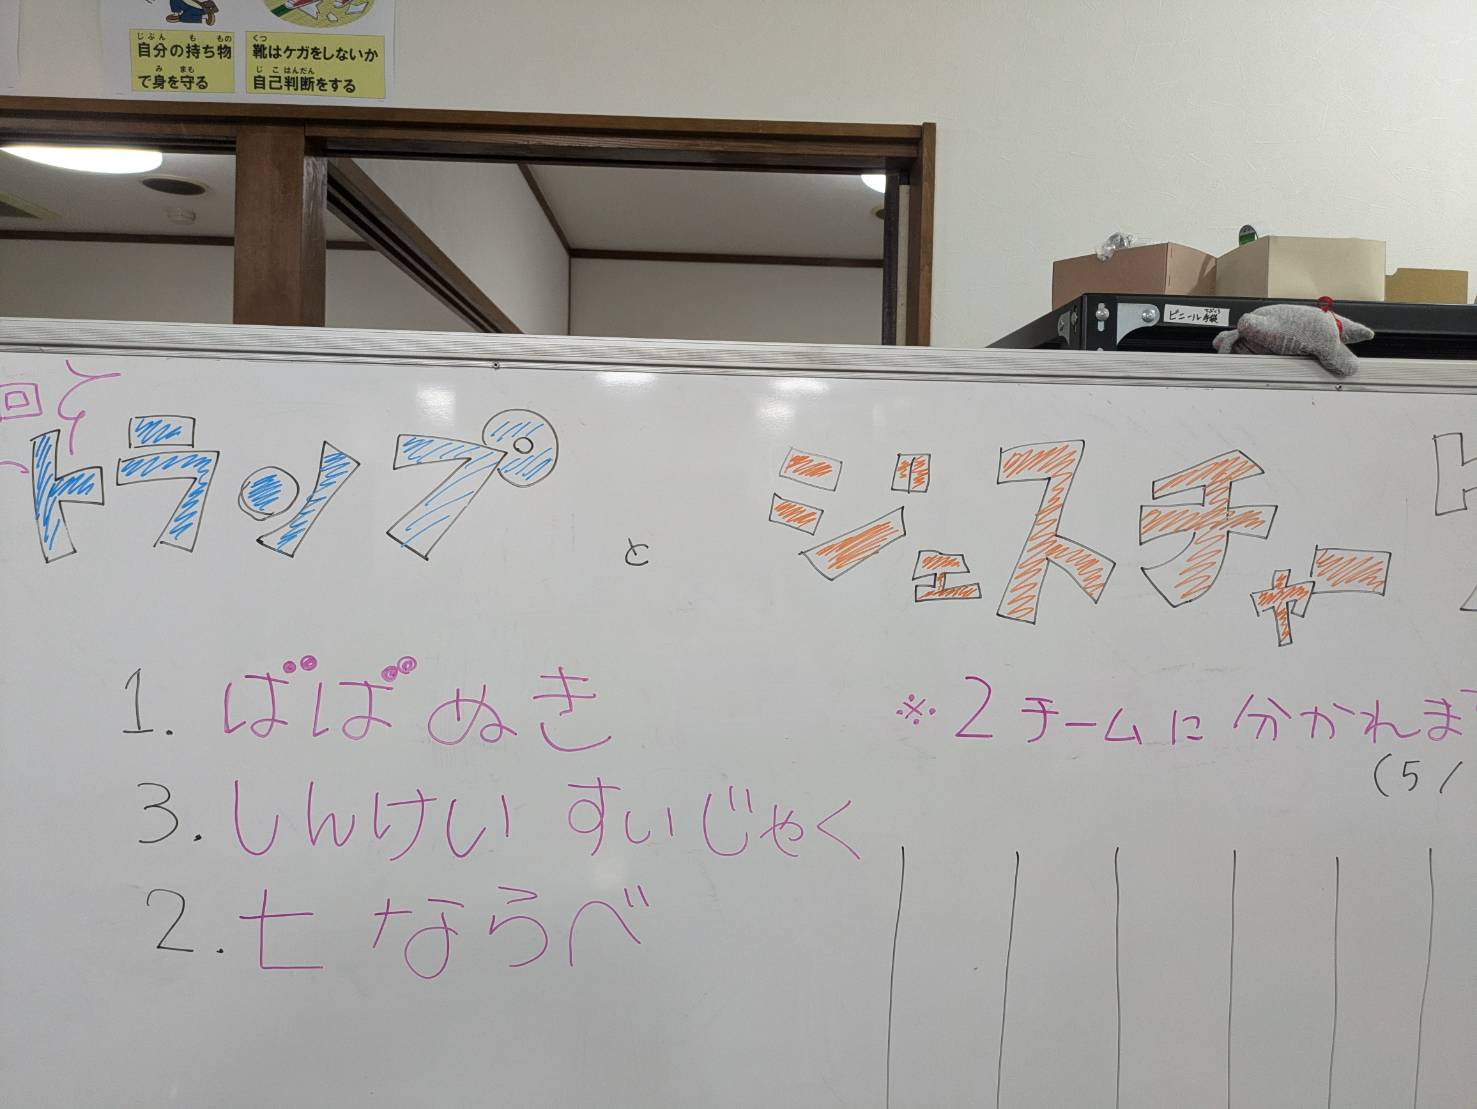 じぶん も もの
自分の持ち物
み まも
で身を守る
くつ
靴はケガをしないか
じこはんだん
自己判断をする
ビニール手袋
トランプ
と
ジェスチャー
1. ばばぬき
3. しんけい すいじゃく
2. 七ならべ
※2チームに分かれま
(5/